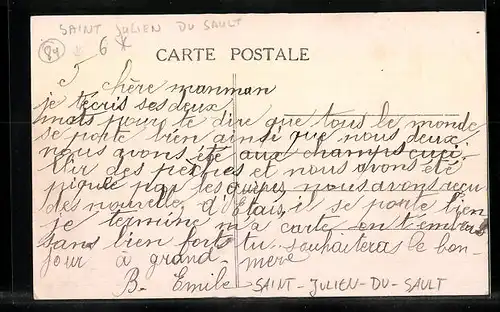 SAINT JULIEN DU SAULT
89
6
CARTE POSTALE
chère manman
je técris ses deux
mots pour te dire que tous le monde
se porte bien ainsi que nous deux
nous avons été aux champs cuei
lir des et nous avons été
piquée par les guêpes nous avons reçu
des nouvelle d'Etais il se porte bien
je termine ma carte en t'embras
sans bien fort tu souhaiteras le bon-
jour à grand-mère
B. Emile
SAINT-JULIEN-DU-SAULT